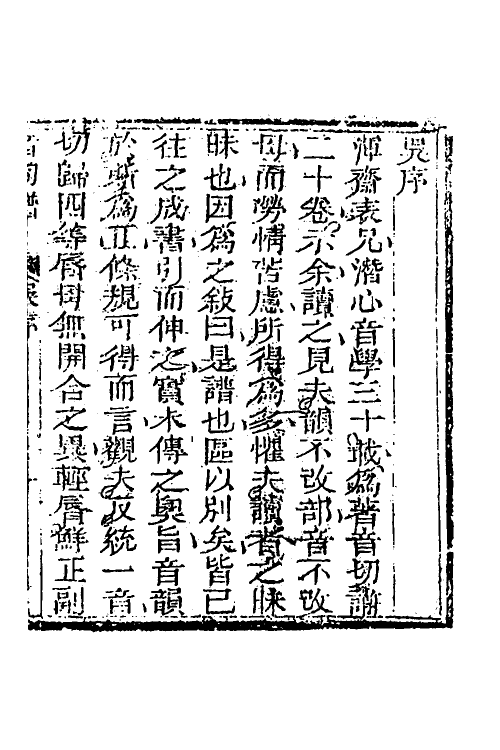 吳序
渾齋表兄潛心音學三十載為著音切譜
二十卷示余讀之見夫韻不改部音不改
母而勞情苦慮所得為多懼夫讀者之昧
昧也因為之敘曰是譜也區以別矣皆已
往之成書引而伸之實未傳之奧旨音韻
於斯為正條規可得而言觀夫反統一音
切歸四等脣母無開合之異輕脣鮮正副
音切譜 吳序